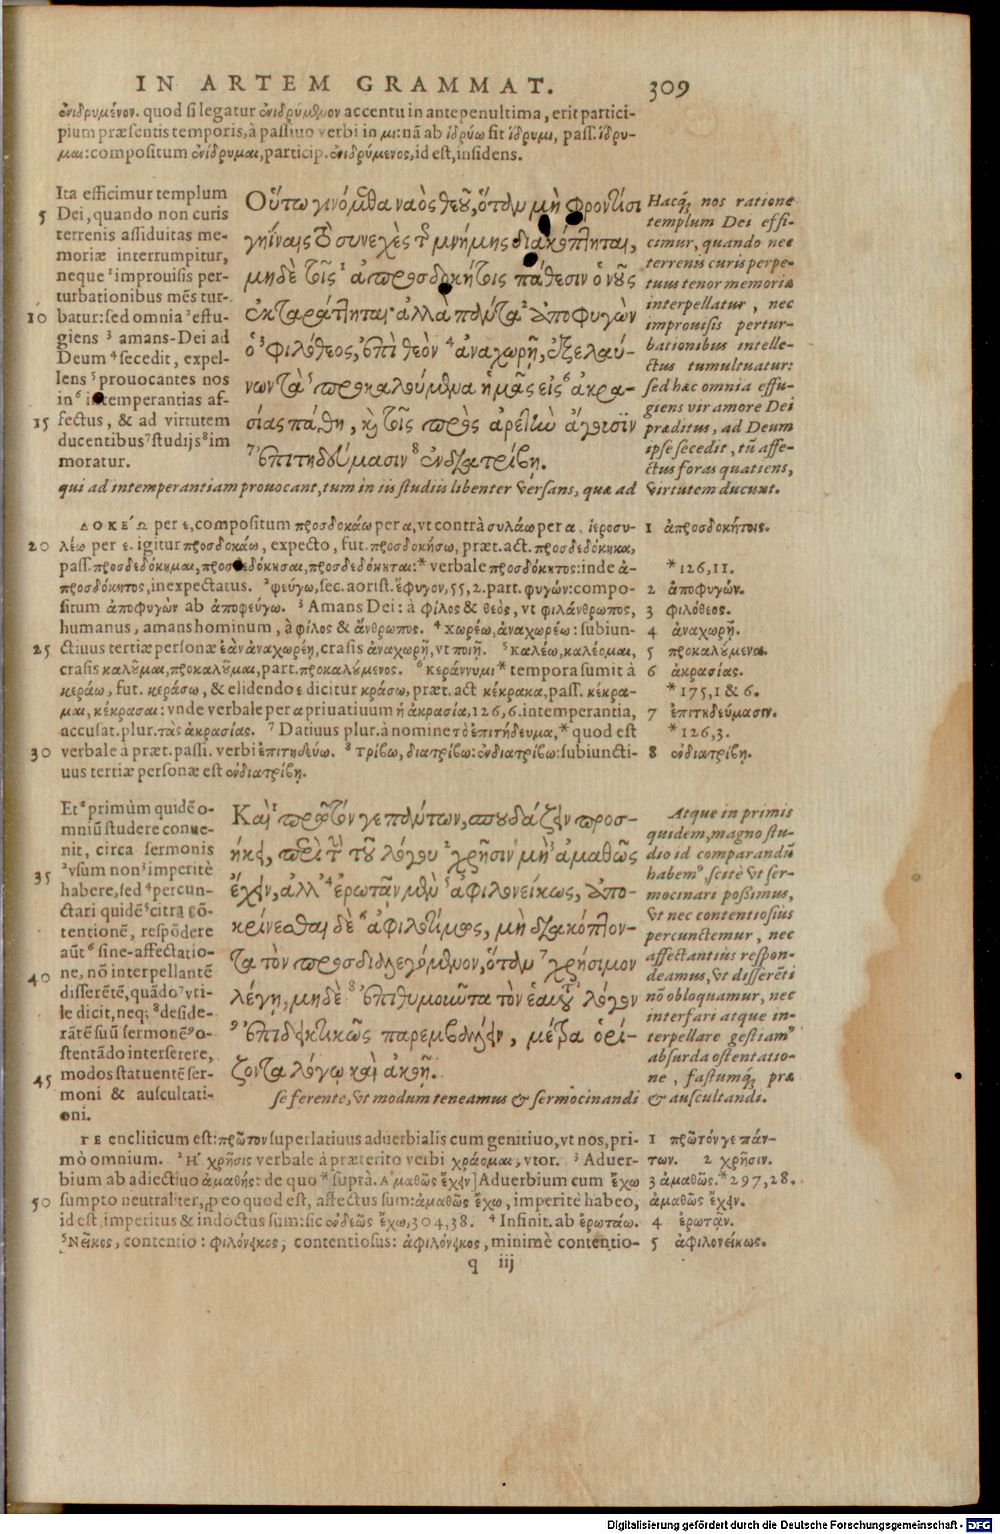 IN ARTEM GRAMMAT. 309
ἐνιδρυμένον. quod si legatur ἐνιδρύμενον accentu in antepenultima, erit partici-
pium præsentis temporis, à passiuo verbi in μι: nã ab ἱδρύω fit ἵδρυμι, pass. ἵδρυ-
μαι: compositum ἐνίδρυμαι, particip. ἐνιδρύμενος, id est, insidens.
Ita efficimur templum
5 Dei, quando non curis
terrenis assiduitas me-
moriæ interrumpitur,
neque ¹improuisis per-
turbationibus mẽs tur-
10 batur: sed omnia ²effu-
giens ³ amans-Dei ad
Deum ⁴secedit, expel-
lens ⁵prouocantes nos
in⁶ intemperantias af-
15 fectus, & ad virtutem
ducentibus⁷studijs⁸im
moratur.
Οὕτω γινόμεθα ναὸς θεοῦ, ὅταν μὴ φροντίσι
γηΐναις τὸ συνεχὲς τῆς μνήμης διακόπτηται,
μηδὲ τοῖς ¹ἀπροσδοκήτοις πάθεσιν ὁ νοῦς
ἐκταράττηται· ἀλλὰ πάντα ²ἀποφυγὼν
ὁ ³φιλόθεος, ἐπὶ θεὸν ⁴ἀναχωρῇ, ἐξελαύ-
νων τὰ ⁵προκαλούμενα ἡμᾶς εἰς ⁶ἀκρα-
σίας πάθη, καὶ τοῖς πρὸς ἀρετὴν ἄγουσιν
⁷ἐπιτηδεύμασιν ⁸ἐνδιατρίβῃ.
Hacq́; nos ratione
templum Dei effi-
cimur, quando nec
terrenis curis perpe-
tuus tenor memoriæ
interpellatur, nec
improuisis pertur-
bationibus intelle-
ctus tumultuatur:
sed hæc omnia effu-
giens vir amore Dei
præditus, ad Deum
ipse secedit, tũ affe-
ctus foras quatiens,
qui ad intemperantiam prouocant, tum in iis studiis libenter versans, quæ ad virtutem ducunt.
ΔΟΚΕ´Ω per ε, compositum προσδοκάω per α, vt contrà συλάω per α. ἱεροσυ- 1 ἀπροσδοκήτοις.
20 λέω per ε. igitur προσδοκάω, expecto, fut. προσδοκήσω, præt. act. προσδεδόκηκα,
pass. προσδεδόκημαι, προσδεδόκησαι, προσδεδόκηται:* verbale προσδόκητος: inde ἀ- *126,11.
προσδόκητος, inexpectatus. ²φεύγω, sec. aorist. ἔφυγον, 55, 2. part. φυγών: compo- 2 ἀποφυγών.
situm ἀποφυγὼν ab ἀποφεύγω. ³ Amans Dei: à φίλος & θεὸς, vt φιλάνθρωπος, 3 φιλόθεος.
humanus, amans hominum, à φίλος & ἄνθρωπος. ⁴ χωρέω, ἀναχωρέω: subiun- 4 ἀναχωρῇ.
25 ctiuus tertiæ personæ ἐὰν ἀναχωρέῃ, crasis ἀναχωρῇ, vt ποιῇ. ⁵ καλέω, καλέομαι, 5 προκαλούμενα.
crasis καλοῦμαι, προκαλοῦμαι, part. προκαλούμενος. ⁶ κεράννυμι* tempora sumit à 6 ἀκρασίας.
κεράω, fut. κεράσω, & elidendo ε dicitur κράσω, præt. act κέκρακα, pass. κέκρα- *175,1 & 6.
μαι, κέκρασαι: vnde verbale per α priuatiuum ἡ ἀκρασία, 126, 6. intemperantia, 7 ἐπιτηδεύμασιν.
accusat. plur. τὰς ἀκρασίας. ⁷ Datiuus plur. à nomine τὸ ἐπιτήδευμα,* quod est *126,3.
30 verbale à præt. passi. verbi ἐπιτηδεύω. ⁸ τρίβω, διατρίβω: ἐνδιατρίβω: subiuncti- 8 ἐνδιατρίβῃ.
uus tertiæ personæ est ἐνδιατρίβῃ.
Et ¹primùm quidẽ o-
mniũ studere conue-
nit, circa sermonis
35 ²vsum non³imperitè
habere, sed ⁴percun-
ctari quidẽ⁵citra cõ-
tentionẽ, respõdere
aũt⁶ sine-affectatio-
40 ne, nõ interpellantẽ
disserẽtẽ, quãdo⁷vti-
le dicit, neq; ⁸deside-
rãtẽ suũ sermonẽ⁹o-
stentãdo interserere,
45 modos statuentẽ ser-
moni & auscultati-
oni.
Καὶ ¹πρῶτόν γε πάντων, σπουδάζειν προσ-
ήκει, περὶ τὴν τοῦ λόγου ²χρῆσιν μὴ ³ἀμαθῶς
ἔχειν, ἀλλ' ⁴ἐρωτᾷν μὲν ⁵ἀφιλονείκως, ἀπο-
κρίνεσθαι δὲ ⁶ἀφιλοτίμως, μὴ διακόπτον-
τα τὸν προσδιαλεγόμενον, ὅταν ⁷χρήσιμον
λέγῃ, μηδὲ ⁸ἐπιθυμοιῶτα τὸν ἑαυτοῦ λόγον
⁹ἐπιδεικτικῶς παρεμβάλλειν, μέτρα ὁρί-
ζοντα λόγῳ καὶ ἀκοῇ.
Atque in primis
quidem, magno stu-
dio id comparandũ
habem⁹, scitè vt ser-
mocinari possimus,
vt nec contentiosiùs
percunctemur, nec
affectantiùs respon-
deamus, vt disserẽti
nõ obloquamur, nec
interfari atque in-
terpellare gestiam⁹
absurda ostentatio-
ne, fastumq́; præ
se ferente, vt modum teneamus & sermocinandi & auscultandi.
ΓΕ encliticum est: πρῶτον superlatiuus aduerbialis cum genitiuo, vt nos, pri- 1 πρῶτόν γε πάν-
mò omnium. ² Η῾ χρῆσις verbale à præterito verbi χράομαι, vtor. ³ Aduer- των. 2 χρῆσιν.
bium ab adiectiuo ἀμαθής: de quo * suprà. Α᾿μαθῶς ἔχειν] Aduerbium cum ἔχω 3 ἀμαθῶς. *297,28.
50 sumpto neutraliter, pro eo quod est, affectus sum: ἀμαθῶς ἔχω, imperitè habeo, ἀμαθῶς ἔχειν.
id est, imperitus & indoctus sum: sic ἐνδεῶς ἔχω, 304, 38. ⁴ Infinit. ab ἐρωτάω. 4 ἐρωτᾷν.
⁵Νεῖκος, contentio: φιλόνεικος, contentiosus: ἀφιλόνεικος, minimè contentio- 5 ἀφιλονείκως.
q iij
Digitalisierung gefördert durch die Deutsche Forschungsgemeinschaft - DFG